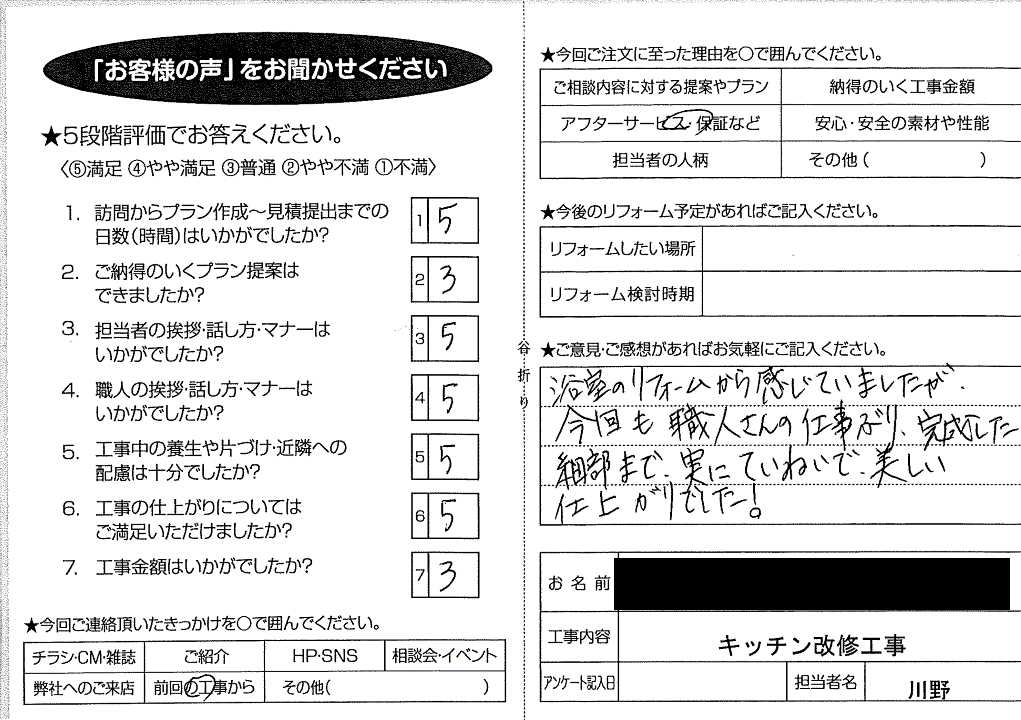 「お客様の声」をお聞かせください
★5段階評価でお答えください。
〈⑤満足 ④やや満足 ③普通 ②やや不満 ①不満〉
1. 訪問からプラン作成～見積提出までの
日数(時間)はいかがでしたか?
1 5
2. ご納得のいくプラン提案は
できましたか?
2 3
3. 担当者の挨拶・話し方・マナーは
いかがでしたか?
3 5
4. 職人の挨拶・話し方・マナーは
いかがでしたか?
4 5
5. 工事中の養生や片づけ・近隣への
配慮は十分でしたか?
5 5
6. 工事の仕上がりについては
ご満足いただけましたか?
6 5
7. 工事金額はいかがでしたか?
7 3
★今回ご連絡頂いたきっかけを○で囲んでください。
チラシ・CM・雑誌 ご紹介 HP・SNS 相談会・イベント
弊社へのご来店 前回の工事から その他( )
谷折り
★今回ご注文に至った理由を○で囲んでください。
ご相談内容に対する提案やプラン 納得のいく工事金額
アフターサービス・保証など 安心・安全の素材や性能
担当者の人柄 その他( )
★今後のリフォーム予定があればご記入ください。
リフォームしたい場所
リフォーム検討時期
★ご意見・ご感想があればお気軽にご記入ください。
浴室のリフォームから感じていましたが、
今回も職人さんの仕事ぶり、完成した
細部まで、実にていねいで、美しい
仕上がりでした!
お名前
工事内容 キッチン改修工事
アンケート記入日 担当者名 川野